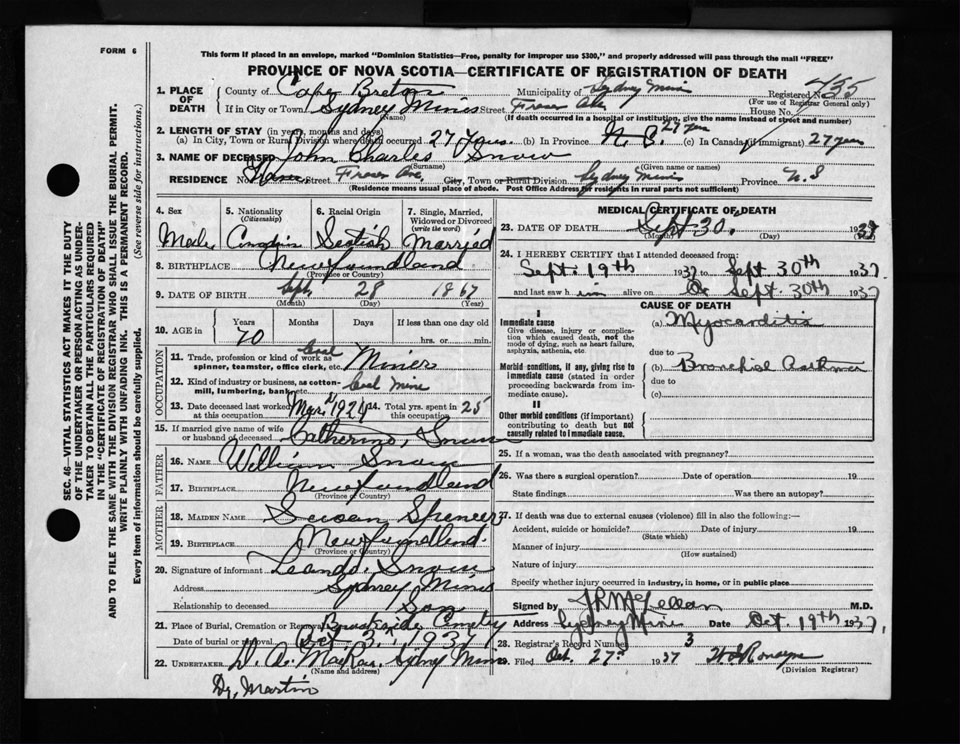 FORM 6
This form if placed in an envelope, marked "Dominion Statistics—Free, penalty for improper use $300," and properly addressed will pass through the mail "FREE"
PROVINCE OF NOVA SCOTIA—CERTIFICATE OF REGISTRATION OF DEATH
SEC. 46—VITAL STATISTICS ACT MAKES IT THE DUTY
OF THE UNDERTAKER OR PERSON ACTING AS UNDER-
TAKER TO OBTAIN ALL THE PARTICULARS REQUIRED
IN THE "CERTIFICATE OF REGISTRATION OF DEATH"
AND TO FILE THE SAME WITH THE DIVISION REGISTRAR WHO SHALL ISSUE THE BURIAL PERMIT.
WRITE PLAINLY WITH UNFADING INK. THIS IS A PERMANENT RECORD.
Every item of information should be carefully supplied. (See reverse side for instructions.)
1. PLACE OF DEATH County of Cape Breton Municipality of Sydney Mines Registered No. 455
(For use of Registrar General only)
If in City or Town Sydney Mines Street Fraser Ave House No.
(Name) (If death occurred in a hospital or institution, give the name instead of street and number)
2. LENGTH OF STAY (in years, months and days)
(a) In City, Town or Rural Division where death occurred 27 Yrs. (b) In Province N.S. 27 yrs (c) In Canada (if immigrant) 27 yrs
3. NAME OF DECEASED John Charles Snow
(Surname) (Given name or names)
RESIDENCE No. Street Fraser Ave. City, Town or Rural Division Sydney Mines Province N.S
(Residence means usual place of abode. Post Office Address for residents in rural parts not sufficient)
4. Sex 5. Nationality (Citizenship) 6. Racial Origin 7. Single, Married, Widowed or Divorced (write the word)
Male Canadian Scotish Married
8. BIRTHPLACE Newfoundland
(Province or Country)
9. DATE OF BIRTH Sept 28 1867
(Month) (Day) (Year)
10. AGE in Years Months Days If less than one day old
70 hrs. or min.
OCCUPATION
11. Trade, profession or kind of work as spinner, teamster, office clerk, etc. Coal Miner
12. Kind of industry or business, as cotton-mill, lumbering, bank, etc. Coal Mine
13. Date deceased last worked at this occupation 14. Total yrs. spent in this occupation 25
15. If married give name of wife or husband of deceased Catherine Snow
FATHER
16. NAME William Snow
17. BIRTHPLACE Newfundland
(Province or Country)
MOTHER
18. MAIDEN NAME Susan Spencer
19. BIRTHPLACE Newfundland.
(Province or Country)
20. Signature of informant Snow
Address Sydney Mines
Relationship to deceased Son
21. Place of Burial, Cremation or Removal Brookside Cemetry
Date of burial or removal Oct 3. 1937
22. UNDERTAKER Sydney Mines
(Name and address)
Dr, Martin
MEDICAL CERTIFICATE OF DEATH
23. DATE OF DEATH Sept 30. 1937
(Month) (Day) (Year)
24. I HEREBY CERTIFY that I attended deceased from:
Sept. 19th 1937 to Sept 30th 1937
and last saw him alive on Sept. 30th 1937
CAUSE OF DEATH
I
Immediate cause (a) Myocarditis
Give disease, injury or complication which caused death, not the mode of dying, such as heart failure, asphyxia, asthenia, etc.
due to
Morbid conditions, if any, giving rise to immediate cause (stated in order proceeding backwards from immediate cause). (b) Bronchial Asthma
due to
(c)
II
Other morbid conditions (if important) contributing to death but not causally related to immediate cause.
25. If a woman, was the death associated with pregnancy?
26. Was there a surgical operation? Date of operation 19
State findings Was there an autopsy?
27. If death was due to external causes (violence) fill in also the following:—
Accident, suicide or homicide? Date of injury 19
(State which)
Manner of injury
(How sustained)
Nature of injury
Specify whether injury occurred in industry, in home, or in public place
Signed by M.D.
Address Sydney Mines Date Oct. 19th 1937.
28. Registrar's Record Number 3
Filed Oct. 27th 1937
(Division Registrar)